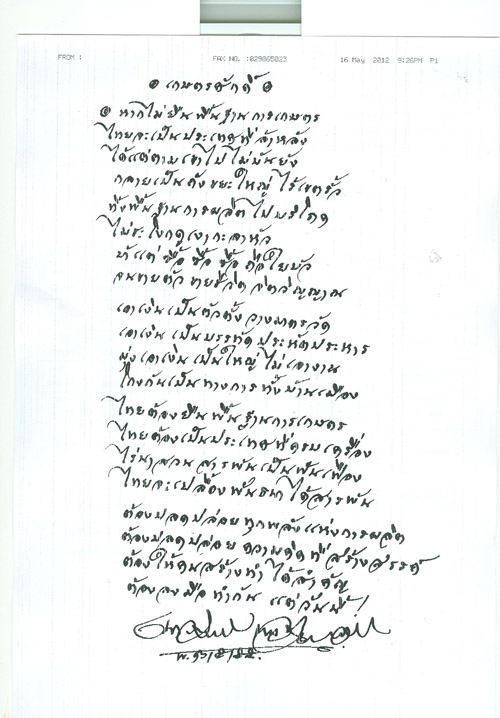 FROM :
FAX NO. :029865023
16 May 2012 9:26PM P1
๏ เกษตรศักดิ์ ๏
๏ หากไม่ยืนพื้นฐานการเกษตร
ไทยจะเป็นประเทศที่ล้าหลัง
ได้แต่ตามเขาไปไม่ยั้นยัง
กลายเป็นดังขยะใหญ่ ไร้เขตรั้ว
ทิ้งพื้นฐานการผลิต ไปบริโภค
ไม่ชะโงกดูเงากะลาหัว
บ้าแต่ ซื้อ ซื้อ ซื้อ ถือใยบัว
จนขายตัว ขายชีวิต จิตวิญญาณ
เอาเงินเป็นตัวตั้ง วางมาตรวัด
เอาเงิน เป็นบรรทัด ประหัตประหาร
มุ่งเอาเงิน เป็นใหญ่ ไม่เอางาน
โกงกันเป็นทางการ ทั้งบ้านเมือง
ไทยต้องยืนพื้นฐานการเกษตร
ไทยต้องเป็นประเทศที่ครบเครื่อง
ไร่นาสวน สารพันเป็นฟันเฟือง
ไทยจะเปลื้องพันธนา ได้สารพัน
ต้องปลดปล่อย ทุกพลังแห่งการผลิต
ต้องปลดปล่อย ความคิด ที่สร้างสรรค์
ต้องให้คนสร้างทำ ได้สำคัญ
ต้องลงมือ ทำกัน แต่วันนี้!